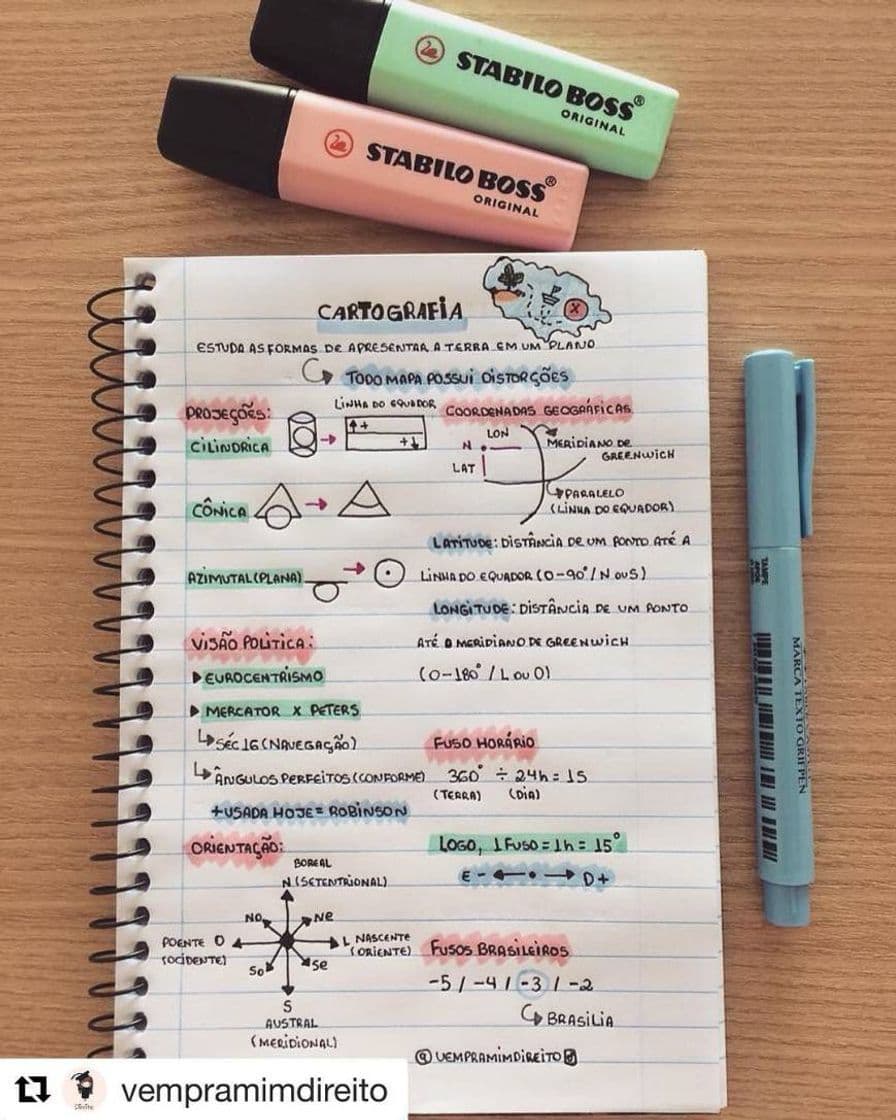 STABILO BOSS®
ORIGINAL
STABILO BOSS®
ORIGINAL
CARTOGRAFIA
ESTUDA AS FORMAS DE APRESENTAR A TERRA EM UM PLANO
TODO MAPA POSSUI DISTORÇÕES
PROJEÇÕES:
CILINDRICA
LINHA DO EQUADOR
↑+
+↓
CÔNICA
AZIMUTAL (PLANA)
VISÃO POLITICA:
▶ EUROCENTRISMO
▶ MERCATOR X PETERS
↳ SÉC 16 (NAVEGAÇÃO)
↳ ÂNGULOS PERFEITOS (CONFORME)
+ USADA HOJE = ROBINSON
ORIENTAÇÃO:
BOREAL
N (SETENTRIONAL)
NO
NE
POENTE O
(OCIDENTE)
L NASCENTE
(ORIENTE)
SO
SE
S
AUSTRAL
(MERIDIONAL)
COORDENADAS GEOGRÁFICAS
LON
N
LAT
MERIDIANO DE
GREENWICH
PARALELO
(LINHA DO EQUADOR)
LATITUDE: DISTÂNCIA DE UM PONTO ATÉ A
LINHA DO EQUADOR (0-90°/N OU S)
LONGITUDE: DISTÂNCIA DE UM PONTO
ATÉ O MERIDIANO DE GREENWICH
(0-180° / L OU O)
FUSO HORÁRIO
360° ÷ 24h = 15
(TERRA) (DIA)
LOGO, 1 FUSO = 1h = 15°
E - ← • → D +
FUSOS BRASILEIROS
-5 / -4 / -3 / -2
↳ BRASILIA
@VEMPRAMIMDIREITO
MARCA TEXTO GRIFPEN
vempramimdireito